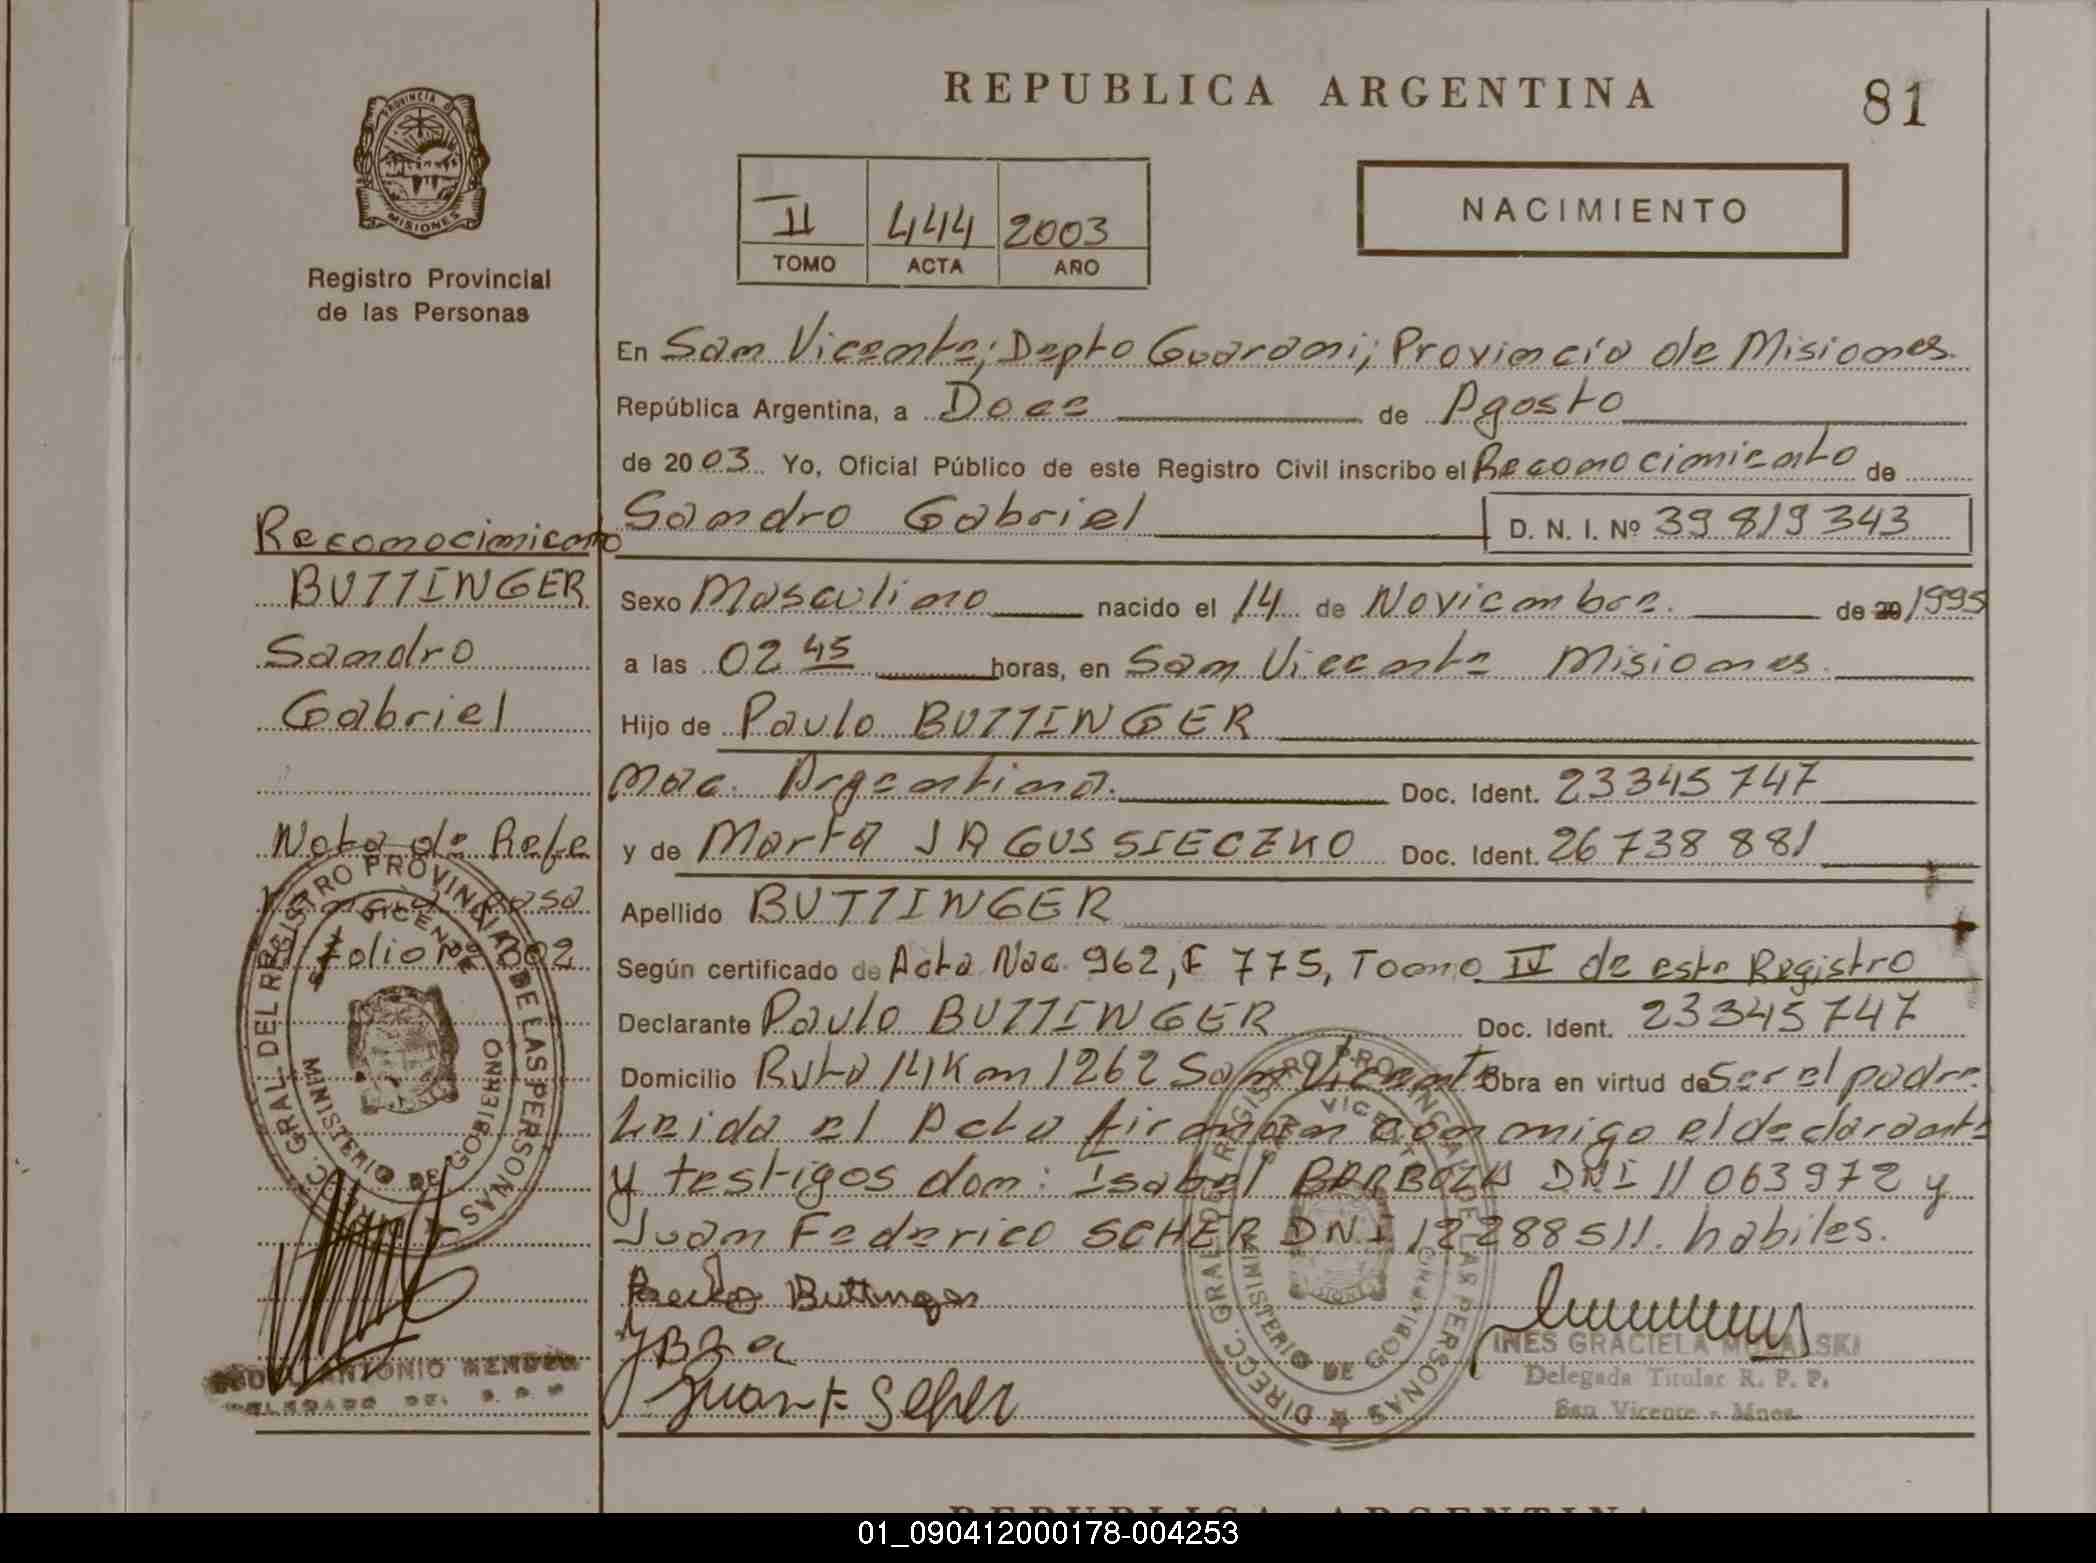 REPUBLICA ARGENTINA
81
PROVINCIA DE
MISIONES
Registro Provincial
de las Personas
II 444 2003
TOMO ACTA AÑO
NACIMIENTO
En San Vicente; Depto Guarani; Provincia de Misiones.
República Argentina, a Doce de Agosto
de 2003 Yo, Oficial Público de este Registro Civil inscribo el Reconocimiento de
Sandro Gabriel D. N. I. Nº 39 819 343
Reconocimiento
BUTTINGER
Sandro
Gabriel
Nota de Refe
pasa
folio Nº 202
Sexo Masculino nacido el 14 de Noviembre. de 20 1995
a las 02 45 horas, en San Vicente Misiones.
Hijo de Paulo BUTTINGER
Nac. Argentina. Doc. Ident. 23345747
y de Marta JAGUSSIECZKO Doc. Ident. 26738881
Apellido BUTTINGER
Según certificado de Acta Nac. 962, F 775, Tomo IV de este Registro
Declarante Paulo BUTTINGER Doc. Ident. 23345747
Domicilio Ruta 14 Km 1262 San Vicente Obra en virtud de Ser el padre.
Leida el Acta firman conmigo el declarante
y testigos don: Isabel BARBOZA DNI 11 063 972 y
Juan Federico SCHER DNI 12288511. habiles.
DIRECC. GRAL. DEL REGISTRO PROVINCIAL DE LAS PERSONAS
SAN VICENTE
MINISTERIO DE GOBIERNO
Buttinger
Juan F Scher
DIRECC. GRAL. DEL REGISTRO PROVINCIAL DE LAS PERSONAS
SAN VICENTE
MINISTERIO DE GOBIERNO
ANTONIO MENDEZ
INES GRACIELA
Delegada Titular R. P. P.
San Vicente - Mnes.
REPUBLICA ARGENTINA
01_090412000178-004253